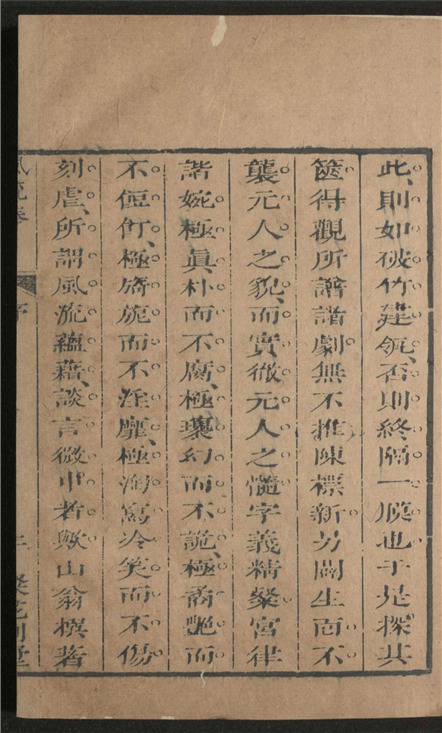 此、則如破竹建瓴、否則終隔一膜也于是探其
篋得觀所譜諸劇無不推陳標新另闢生面不
襲元人之貌、而實徹元人之髓字義精粲宮律
諧婉極眞朴而不腐、極瓌幻而不詭、極矞艷而
不侸仃、極旖旎而不淫靡、極淘寫冷笑而不傷
刻虐、所謂風流蘊藉、談言微中者歟山翁撰著
序